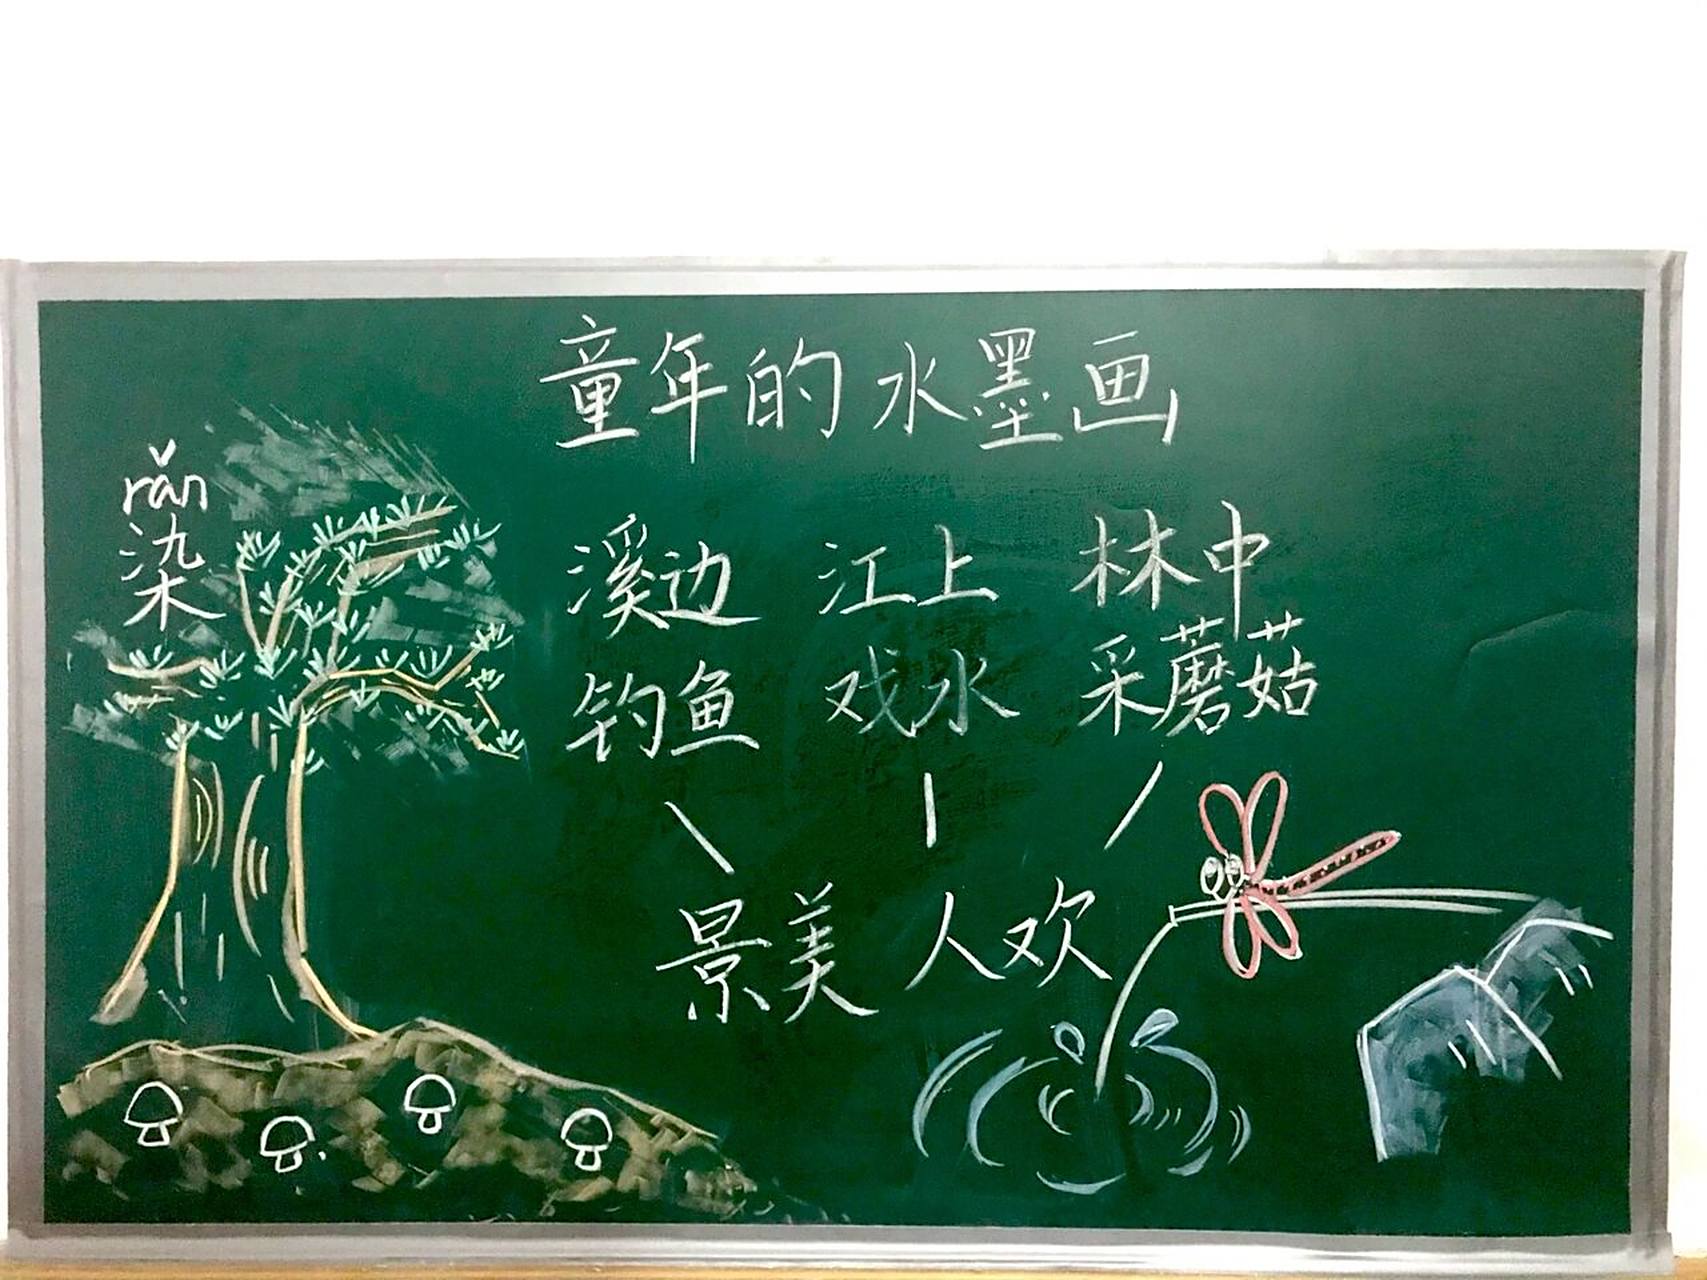 童年的水墨画
rǎn
染
溪边 江上 林中
钓鱼 戏水 采蘑菇
景美 人欢